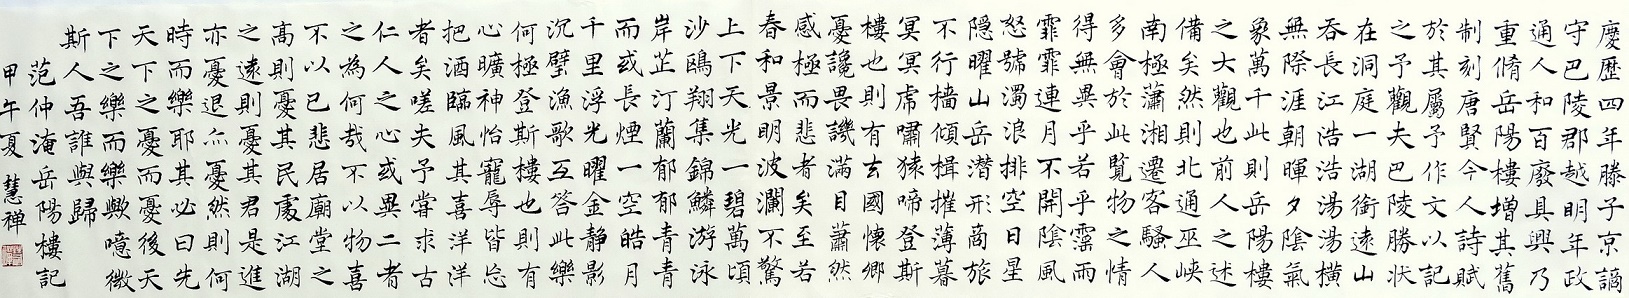 慶歷四年滕子京謫
守巴陵郡越明年政
通人和百廢具興乃
重脩岳陽樓增其舊
制刻唐賢今人詩賦
於其屬予作文以記
之予觀夫巴陵勝狀
在洞庭一湖銜遠山
吞長江浩浩湯湯橫
無際涯朝暉夕陰氣
象萬千此則岳陽樓
之大觀也前人之述
備矣然則北通巫峽
南極瀟湘遷客騷人
多會於此覽物之情
得無異乎若乎霪雨
霏霏連月不開陰風
怒號濁浪排空日星
隱曜山岳潛形商旅
不行檣傾楫摧薄暮
冥冥虎嘯猿啼登斯
樓也則有去國懷鄉
憂讒畏譏滿目蕭然
感極而悲者矣至若
春和景明波瀾不驚
上下天光一碧萬頃
沙鷗翔集錦鱗游泳
岸芷汀蘭郁郁青青
而或長煙一空皓月
千里浮光曜金静影
沉璧漁歌互答此樂
何極登斯樓也則有
心曠神怡寵辱皆忘
把酒臨風其喜洋洋
者矣嗟夫予嘗求古
仁人之心或異二者
之為何哉不以物喜
不以己悲居廟堂之
高則憂其民處江湖
之遠則憂其君是進
亦憂退亦憂然則何
時而樂耶其必曰先
天下之憂而憂後天
下之樂而樂歟噫微
斯人吾誰與歸
范仲淹岳陽樓記
甲午夏 慧禪